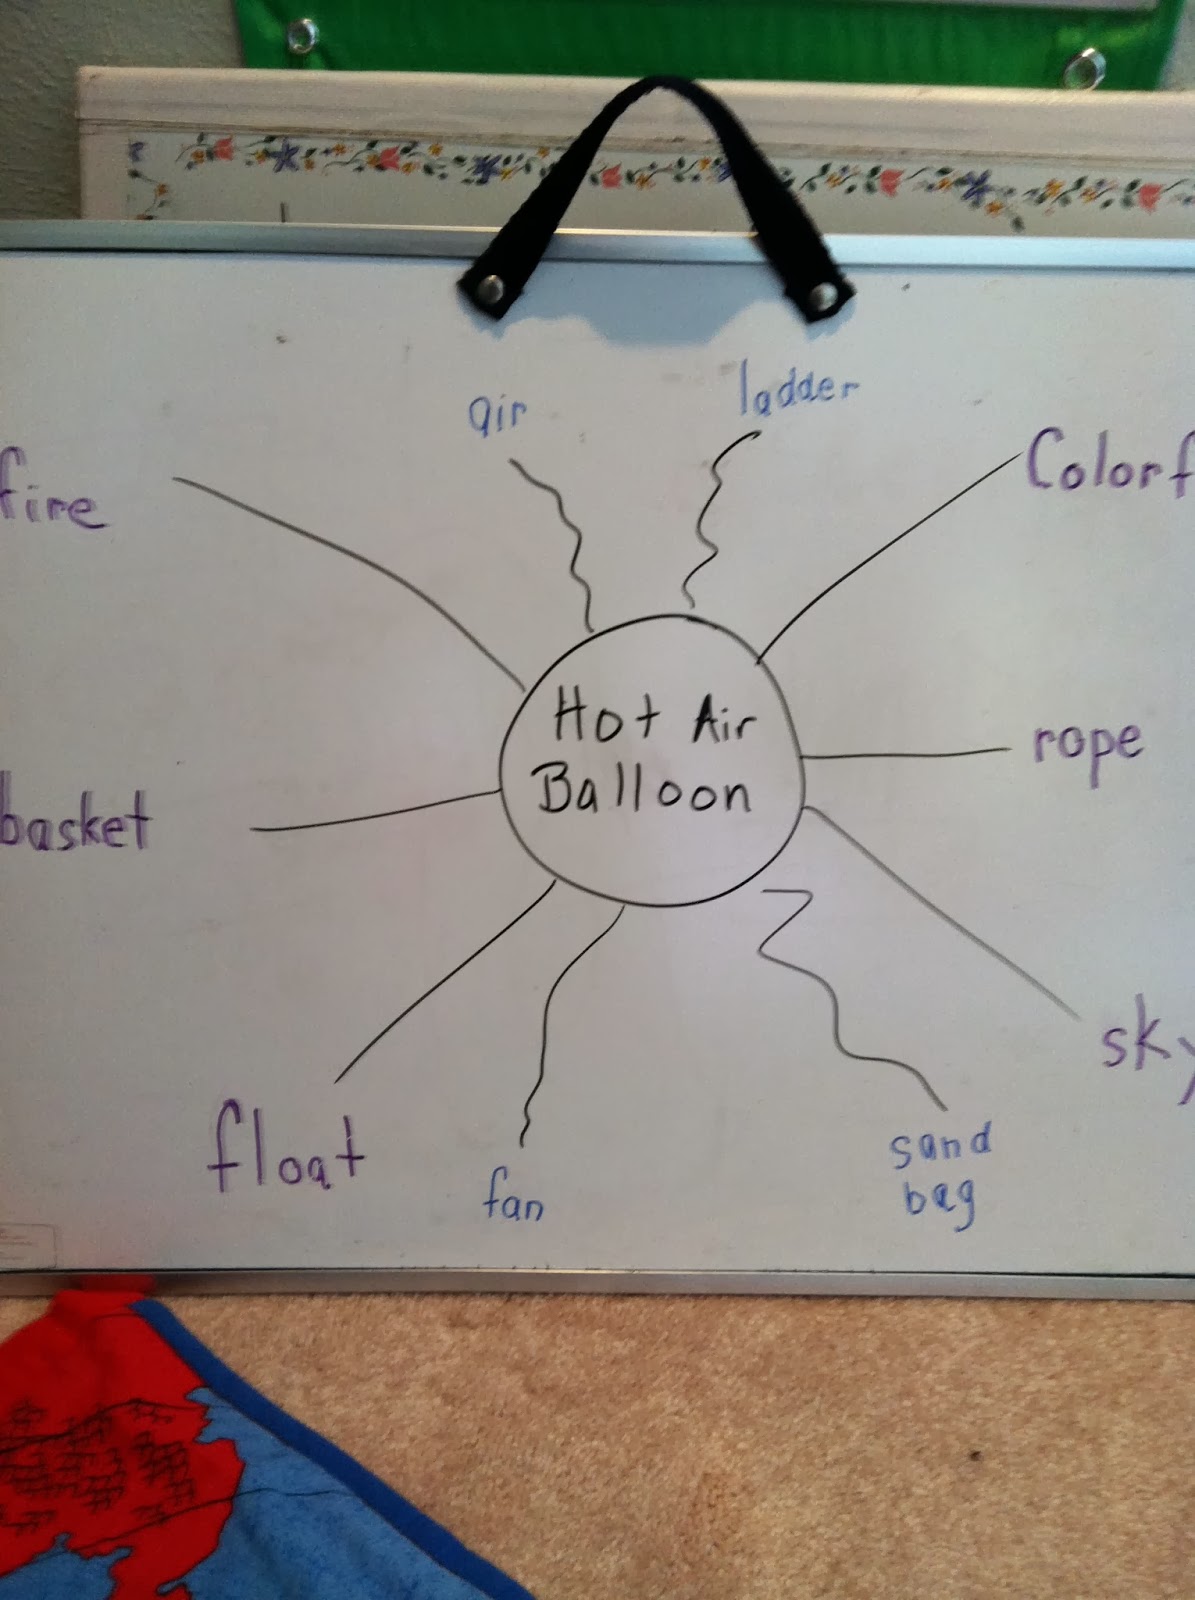 air
ladder
fire
Colorf
Hot Air
Balloon
rope
basket
sky
float
fan
sand
bag